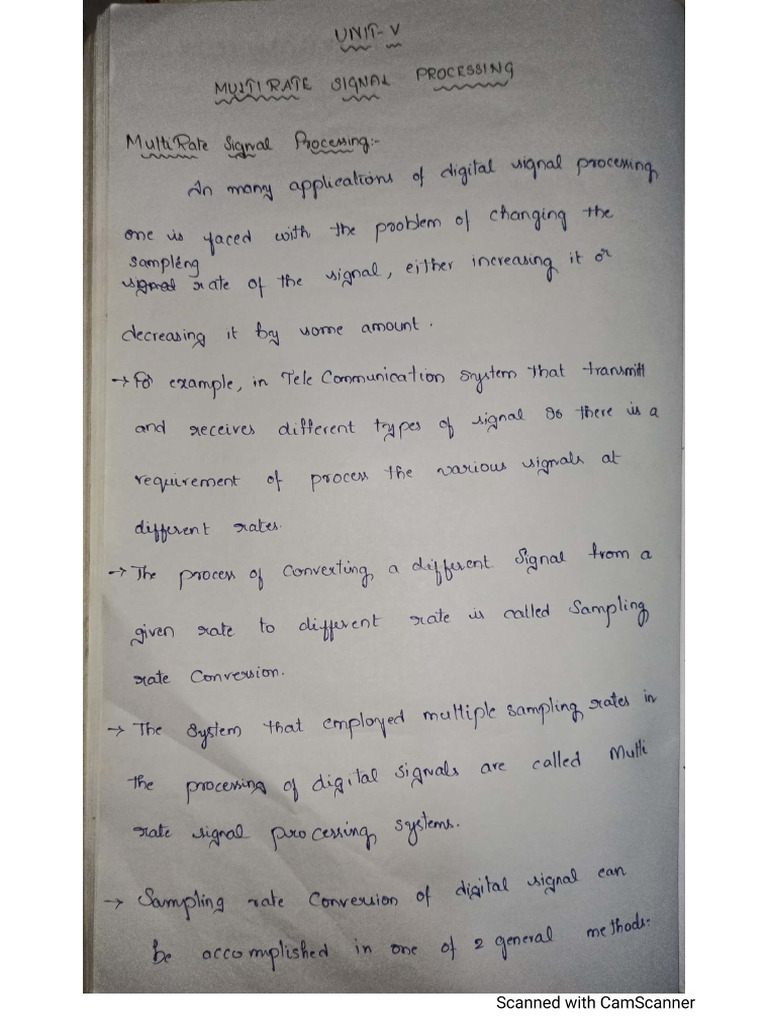 UNIT-V
MULTIRATE SIGNAL PROCESSING
MultiRate Signal Processing:-
In many applications of digital signal processing
one is faced with the problem of changing the
sampling
rate of the signal, either increasing it or
decreasing it by some amount.
→ For example, in Tele Communication System that transmitt
and receives different types of signal so there is a
requirement of process the various signals at
different rates.
→ The process of Converting a different Signal from a
given rate to different rate is called Sampling
rate Conversion.
→ The System that employed multiple sampling rates in
the processing of digital signals are called Multi
rate signal processing systems.
→ Sampling rate Conversion of digital signal can
be accomplished in one of 2 general methods-
Scanned with CamScanner